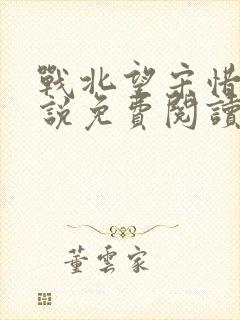 戰北望宋惜
說免費閱讀
董雲家